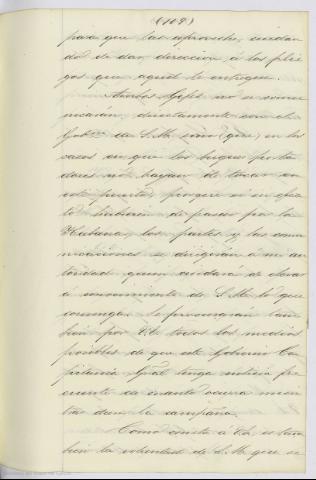 (109)
para que las aproveche, cuidan
do de dar direccion á los plie
gos que aquel le entregue.
Ambos Gefes no se comu
nicarán directamente con el
Gob.no de S.M. sino (que) en los
casos en que los buques porta
dores no hayan de tocar en
este puerto, porque si en efec
to hubieran de pasar por la
Habana, los partes y las comu
nicaciones se dirigirán á mi au
toridad quien cuidará de elevar
á conocimiento de S.M. lo que
convenga. Se proveerán tam
bien por V.E. todos los medios
posibles de que este Gobierno Ca
pitanía Gral tenga noticia fre
cuente de cuanto ocurra mien
tras dure la campaña.
Como consta á V.E. es tam
bien la voluntad de S.M. que se